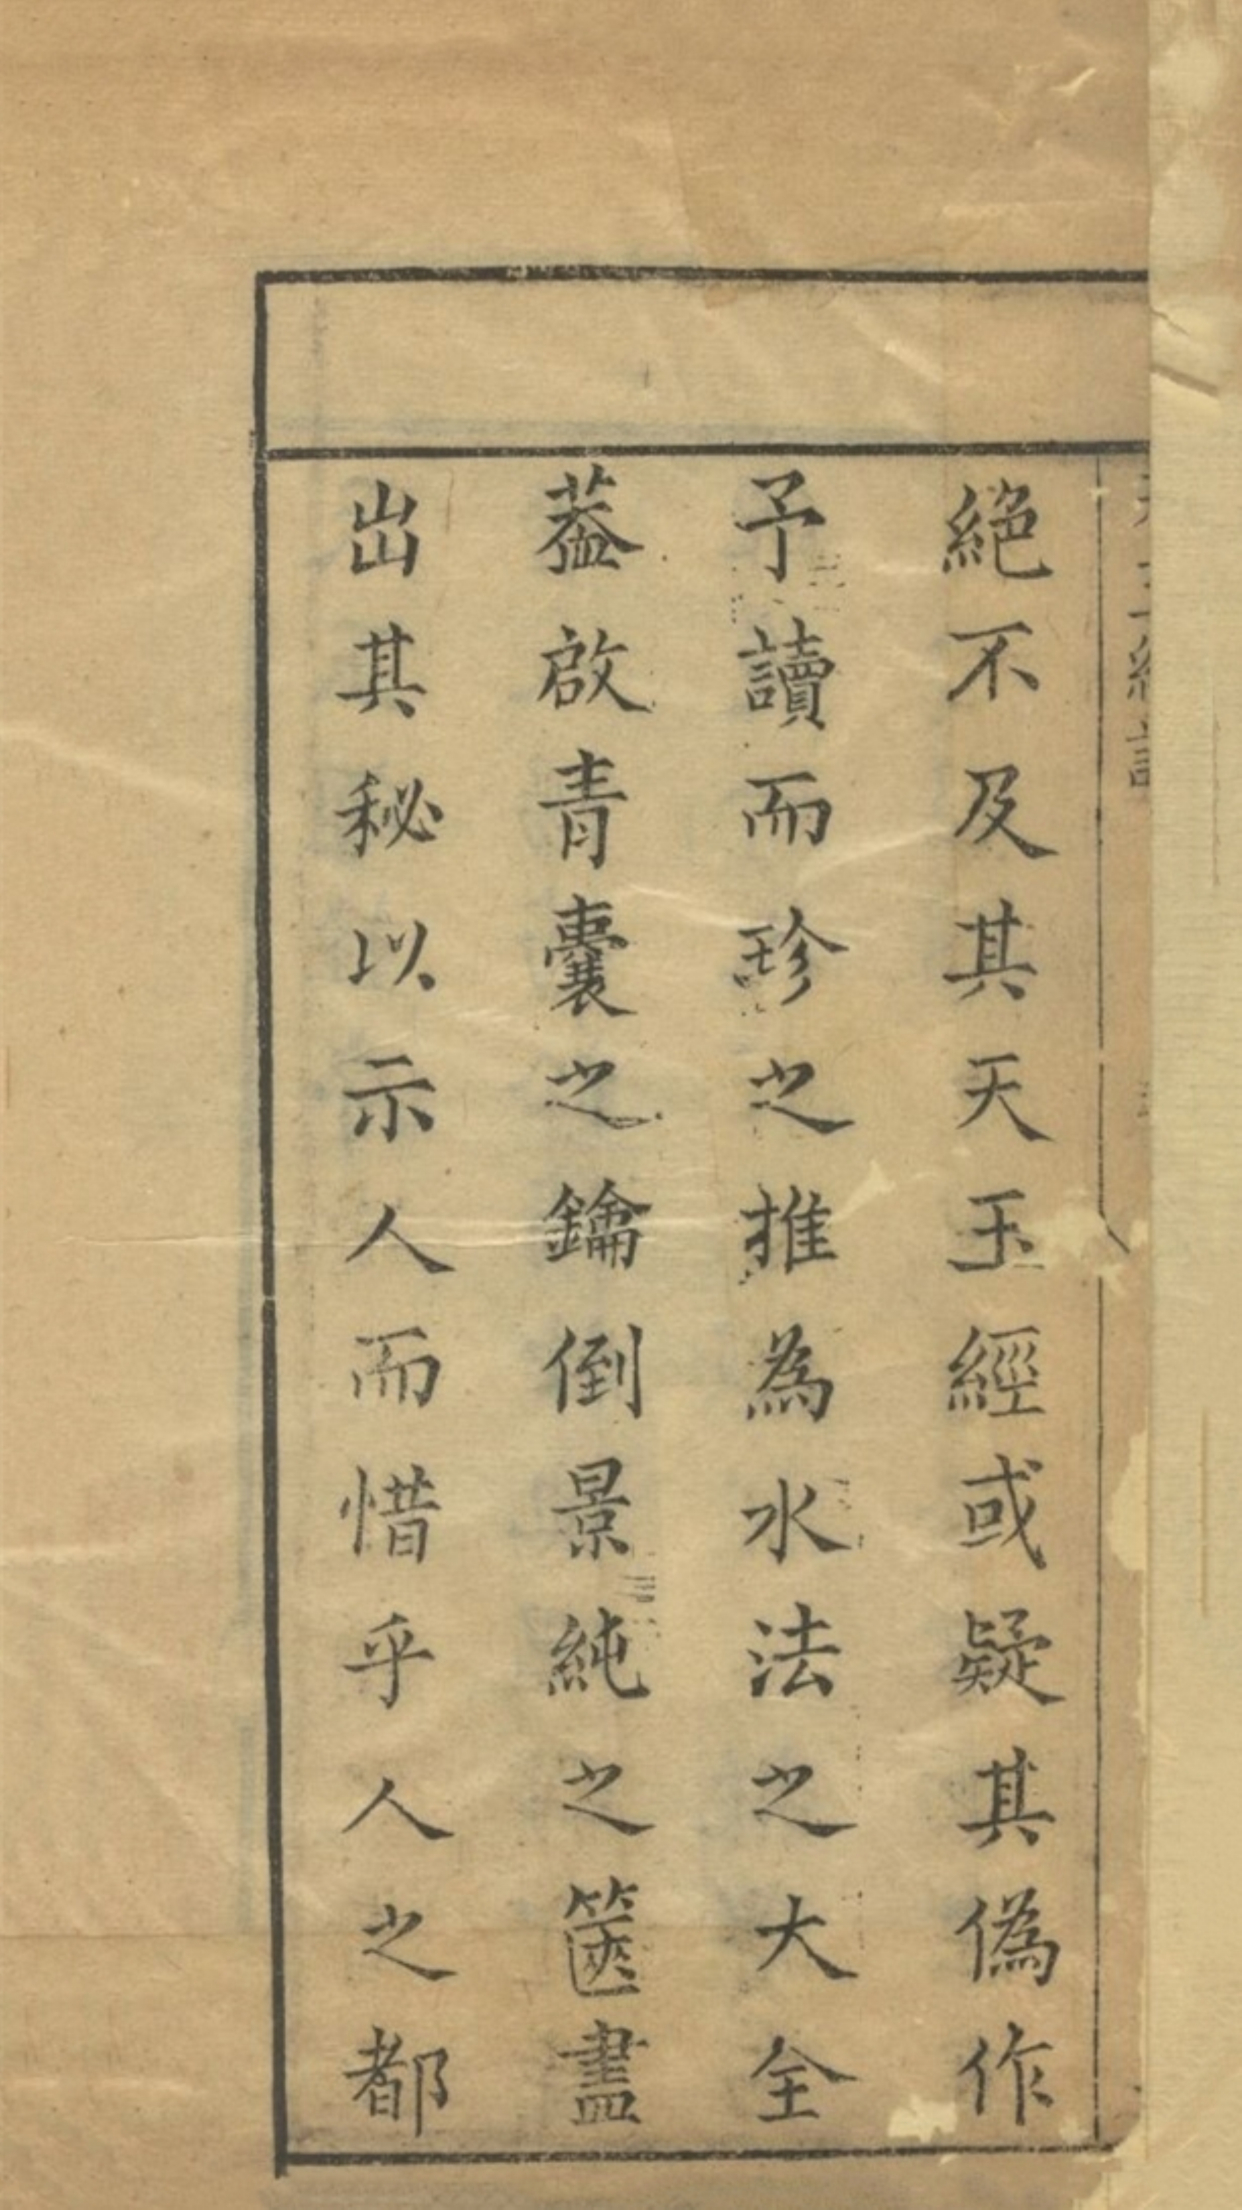 天玉經説
絶不及其天玉經或疑其偽作
予讀而珍之推為水法之大全
葢啟青囊之鑰倒景純之篋盡
出其秘以示人而惜乎人之都